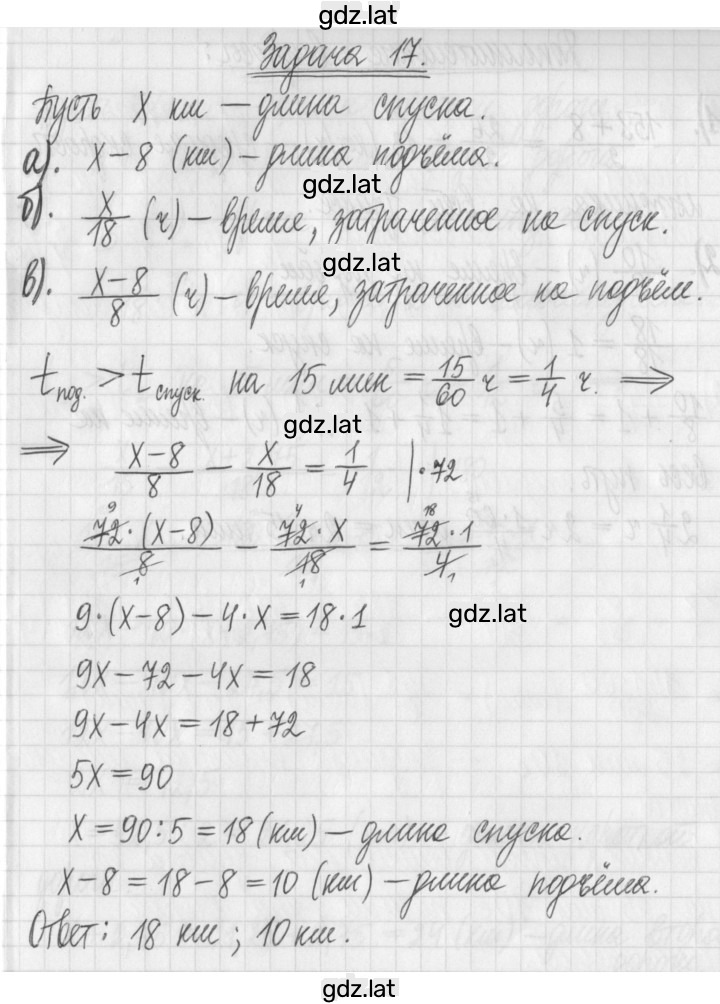 gdz.lat
Задача 17.
Пусть x км – длина спуска.
а). x – 8 (км) – длина подъёма.
gdz.lat
б). x/18 (ч) – время, затраченное на спуск.
gdz.lat
в). x – 8/8 (ч) – время, затраченное на подъём.
t под. > t спуск. на 15 мин = 15/60 ч = 1/4 ч. ⟹
gdz.lat
⟹ x – 8/8 – x/18 = 1/4 | · 72
72 · (x – 8)/8 – 72 · x/18 = 72 · 1/4
9 · (x – 8) – 4 · x = 18 · 1
gdz.lat
9x – 72 – 4x = 18
9x – 4x = 18 + 72
5x = 90
x = 90 : 5 = 18 (км) – длина спуска.
x – 8 = 18 – 8 = 10 (км) – длина подъёма.
Ответ: 18 км; 10 км.
gdz.lat